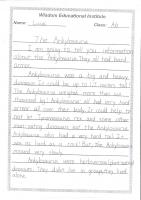 Wisdom Educational Institute
Name: Class: A6
The Ankylosaurus
I am going to tell you information
about the Ankylosaurus. They all had hard
armor.
Ankylosaurus was a big and heavy
dinosaur. It could be up to 1.7 meters tall!
The Ankylosaurus weighed more than six
thousand kg! Ankylosaurus all had very hard
armor all over their body. It could help to
not let Tyrannosaurus rex and some other
meat-eating dinosaurs eat the Ankylosaurus.
Ankylosaurus also had a very hard tail. It
was as hard as a rock! But the Ankylosaurus
moved very slowly.
Ankylosaurus were herbivorous (plant-eating)
dinosaurs. They didn't live in groups, they lived
alone.